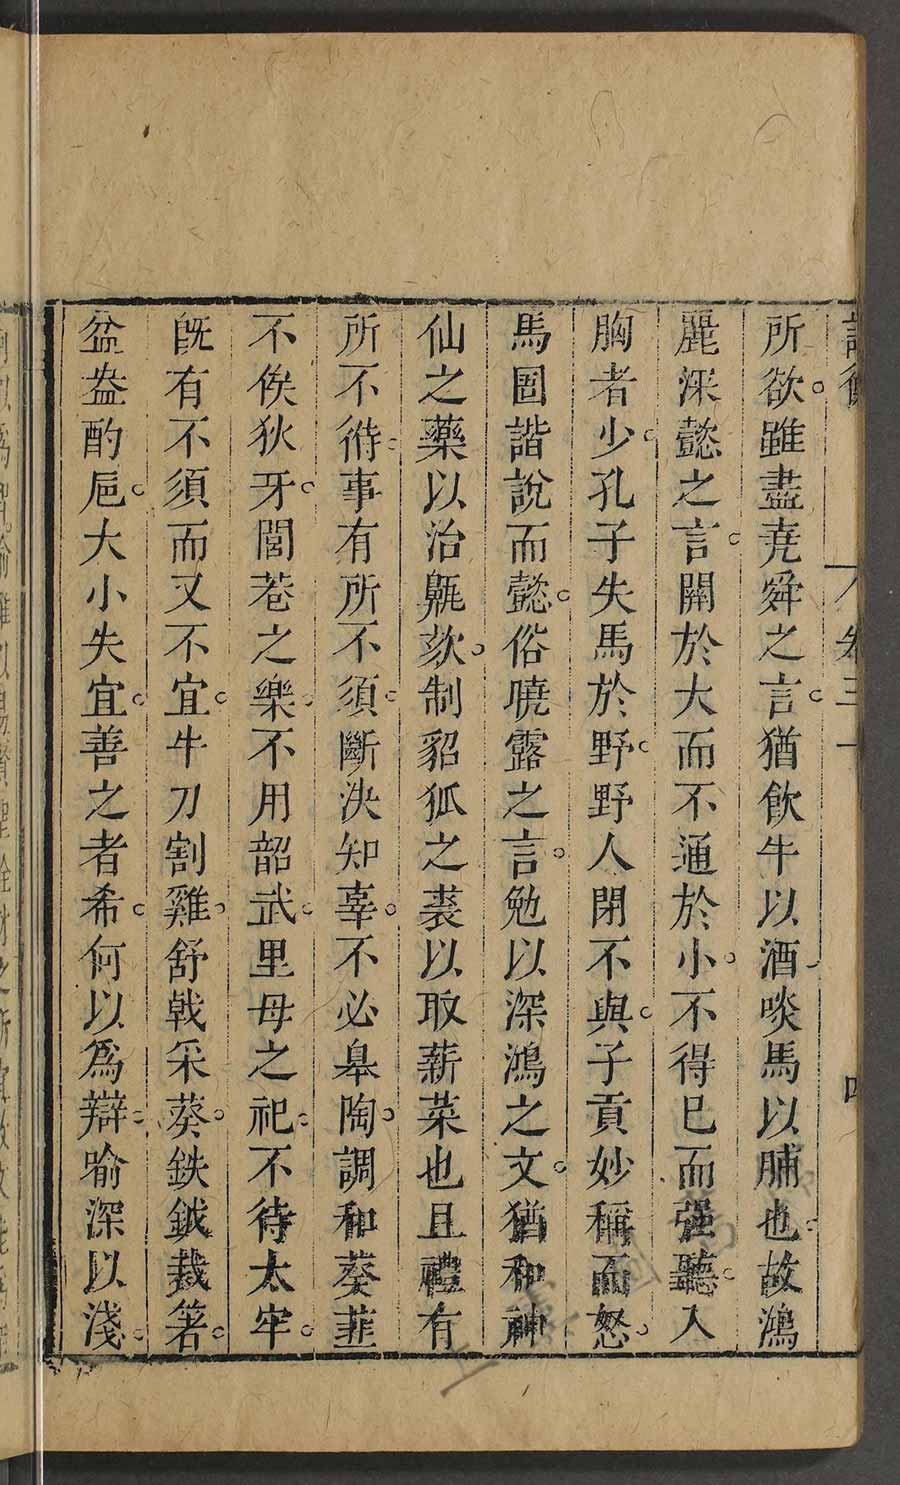 卷三十
所欲雖盡堯舜之言猶飮牛以酒啖馬以脯也故鴻
麗深懿之言關於大而不通於小不得已而强聽入
胸者少孔子失馬於野野人閉不與子貢妙稱而怒
馬圄諧說而懿俗曉露之言勉以深鴻之文猶和神
仙之藥以治鼿欬制貂狐之裘以取薪菜也且禮有
所不彳侍事有所不須斷決知辜不必皋陶調和葵韮
不俟狄牙閭巷之樂不用韶武里母之祀不待太牢
旣有不須而又不宜牛刀割雞舒戟采葵鈇鉞裁箸
盆盎酌巵大小失宜善之者希何以爲辯喻深以淺